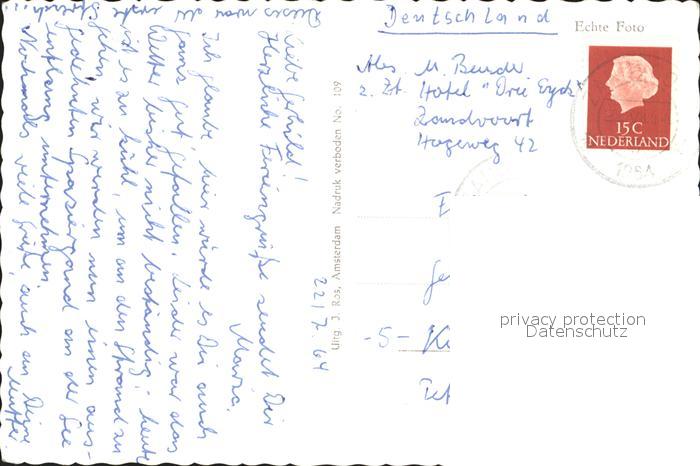 Deutschland
Echte Foto
Abs. M. Bender
z. Zt. Hotel "Drie Eyck"
Zandvoort
Hogeweg 42
15 C
NEDERLAND
1964
E
Ge
-5- Kö
Tet
privacy protection
Datenschutz
Uitg. J. Ros, Amsterdam Nadruk verboden No. 109
22/7. 64
Liebe Gerhild!
Herzliche Feriengrüße sendet Dir
Maria.
Ich glaube, hier würde es Dir auch
ganz gut gefallen. Leider war das
Wetter bisher nicht beständig; heute
ist es zu kühl, um an den Strand zu
gehen, wir werden nun einen aus-
gedehnten Spaziergang an der See
entlang unternehmen.
Nochmals viele Grüße, auch an Deine
Mutter.